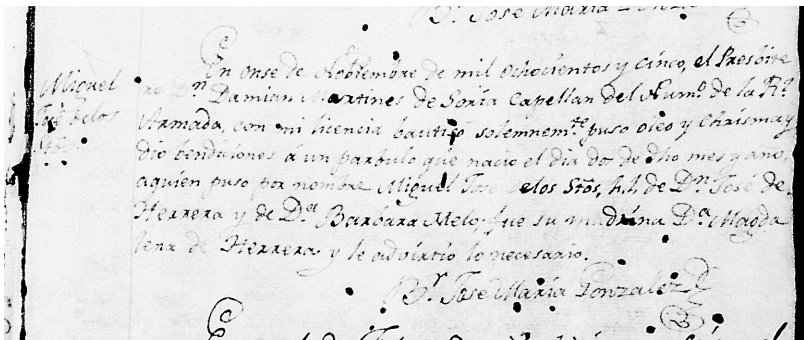 Br. José María
En onse de Nobiembre de mil ochocientos y cinco, el Presbite
ro Dn. Damian Martines de Soria Capellan del Numo. de la Rl.
Armada, con mi licencia bautisó solemnemte. puso oleo y Chrisma y
dio bendiciones á un parbulo que nacio el dia dos de dho mes y año,
aquien puso por nombre Miguel José delos Stos, h.l. de Dn. José de
Herrera y de Da. Barbara Melo, fue su madrina Da. Magda
lena de Herrera y le advirtio lo necesario.
Br. Jose María Gonzalez
Miguel
José delos
Stos.